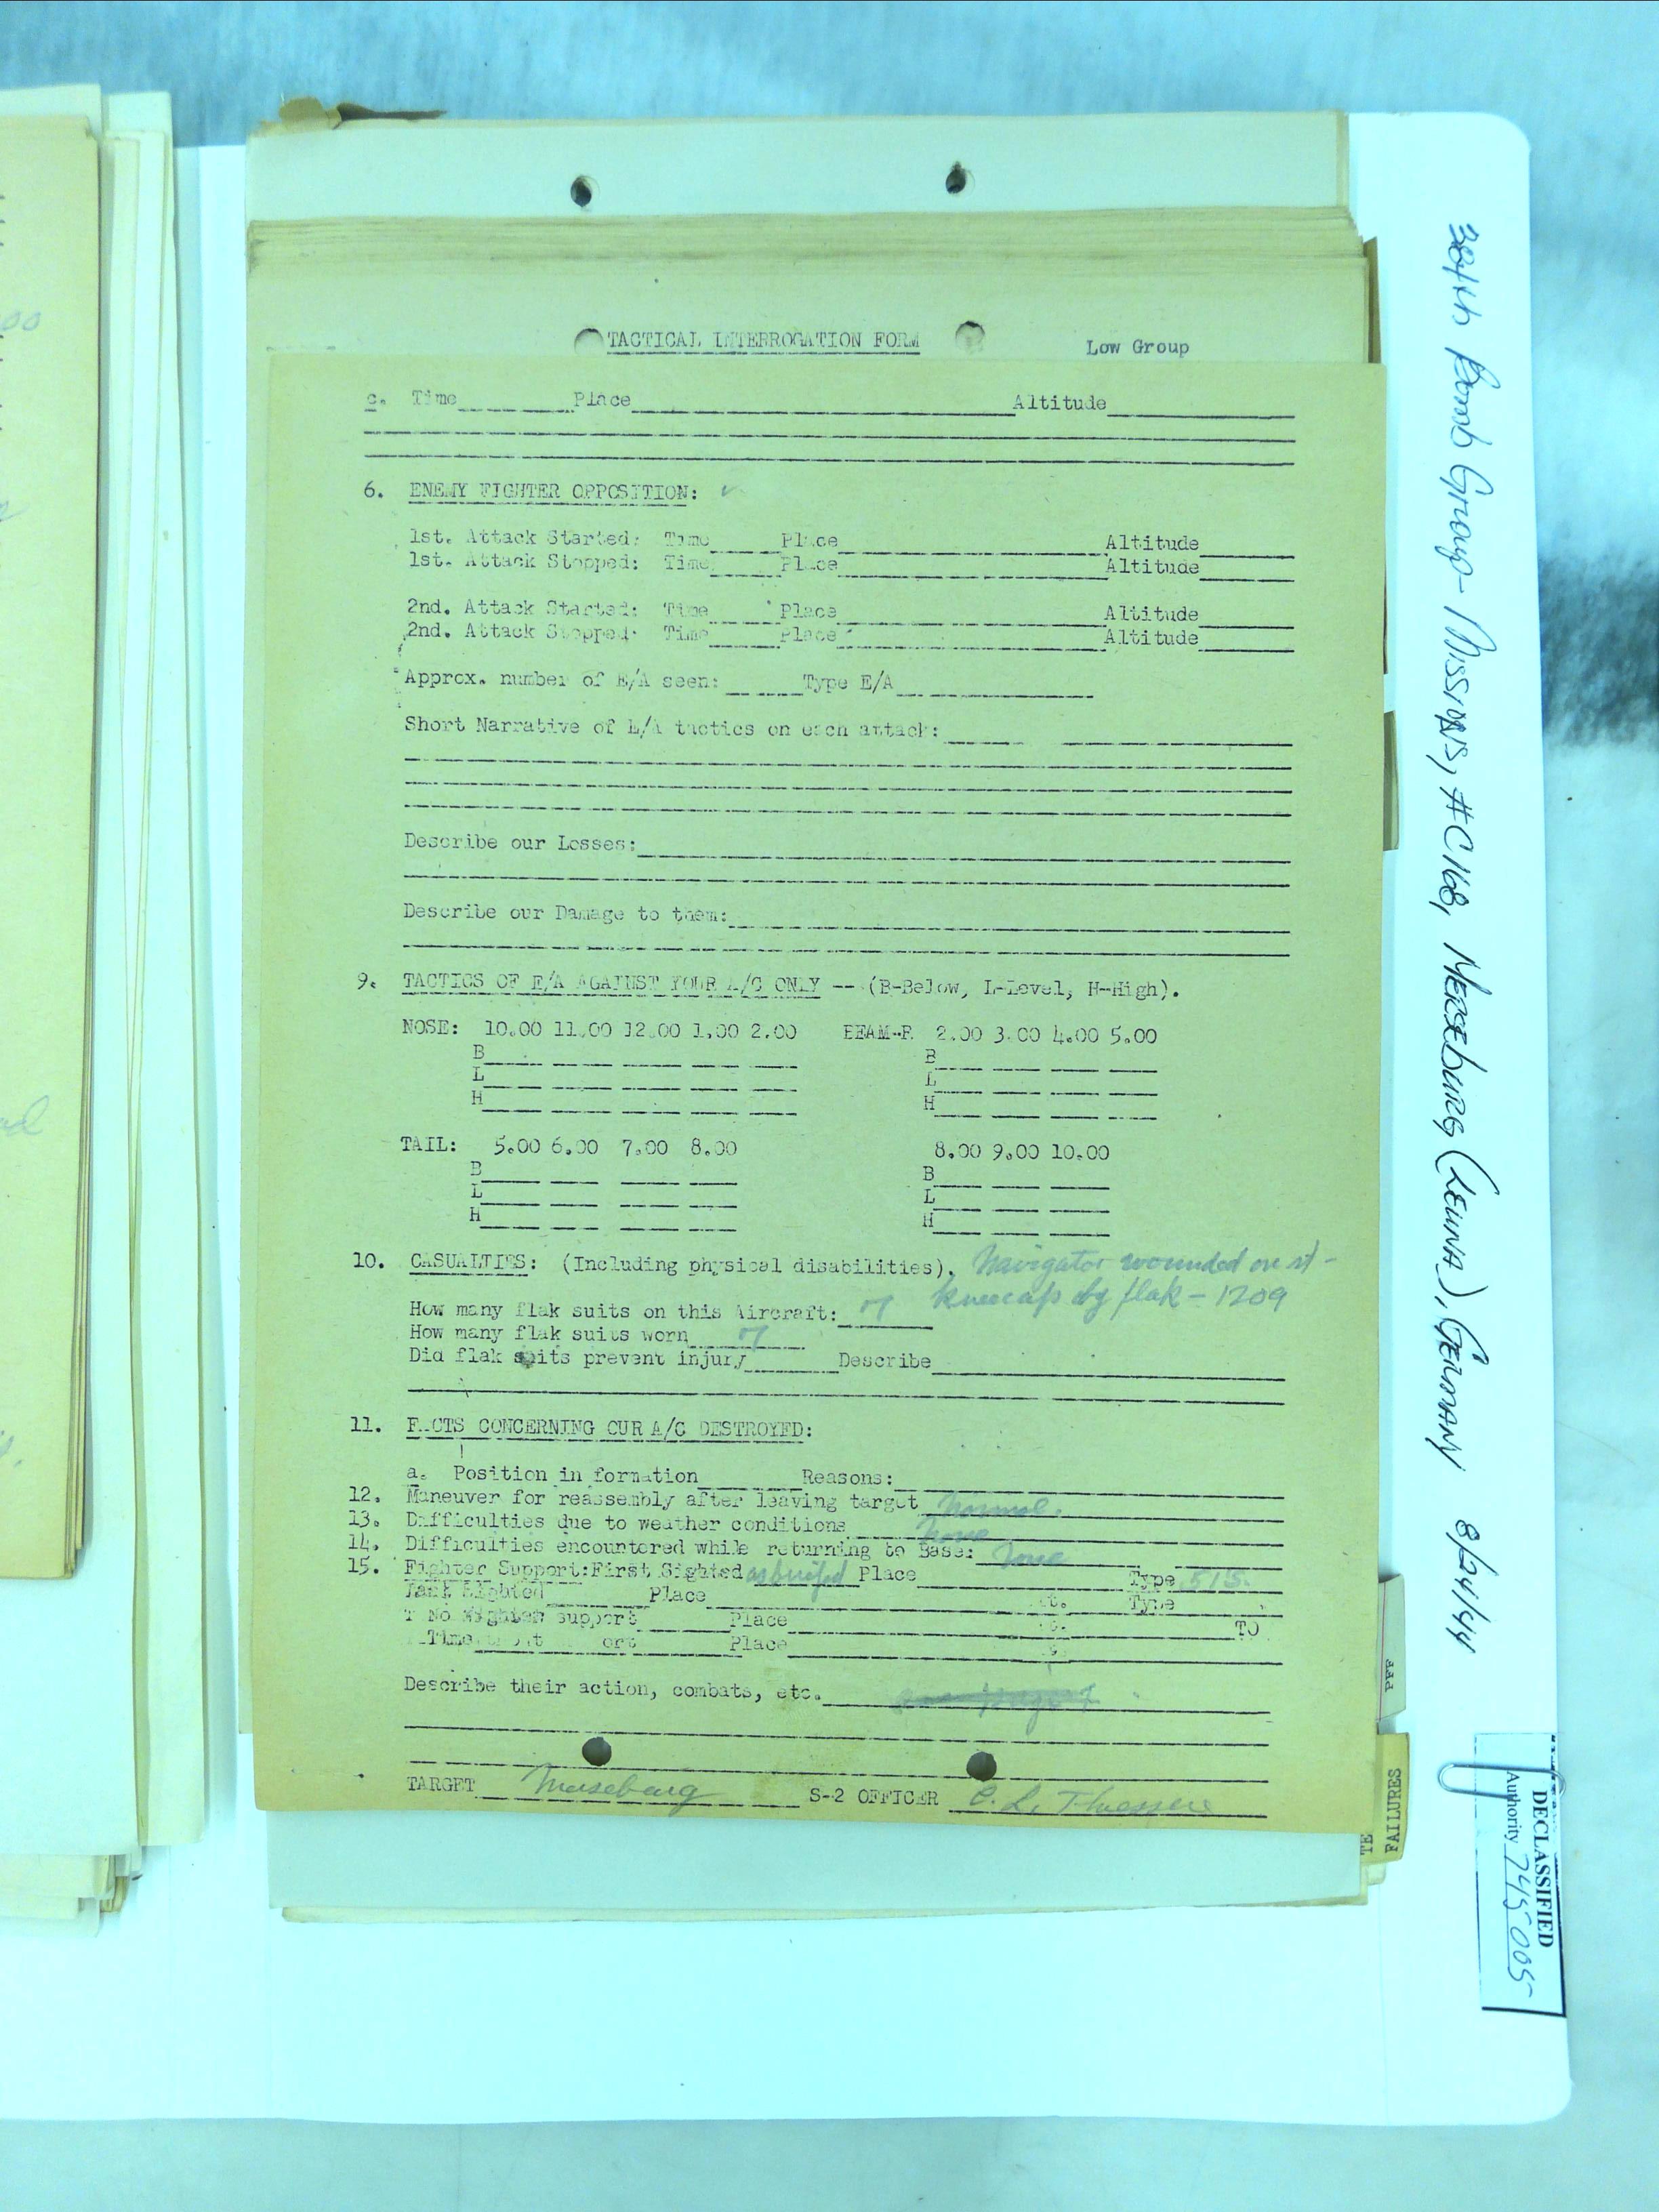 TACTICAL INTERROGATION FORM
Low Group
c. Time Place Altitude
6. ENEMY FIGHTER OPPOSITION:
1st. Attack Started: Time Place Altitude
1st. Attack Stopped: Time Place Altitude
2nd. Attack Started: Time Place Altitude
2nd. Attack Stopped: Time Place Altitude
Approx. number of E/A seen: Type E/A
Short Narrative of E/A tactics on each attack:
Describe our Losses:
Describe our Damage to them:
9. TACTICS OF E/A AGAINST YOUR A/C ONLY -- (B-Below, L-Level, H-High).
NOSE: 10.00 11.00 12.00 1.00 2.00 BEAM-R 2.00 3.00 4.00 5.00
B B
L L
H H
TAIL: 5.00 6.00 7.00 8.00 8.00 9.00 10.00
B B
L L
H H
10. CASUALTIES: (Including physical disabilities). Navigator wounded on
kneecap by flak - 1209
How many flak suits on this Aircraft: 7
How many flak suits worn 7
Did flak suits prevent injury Describe
11. FACTS CONCERNING OUR A/C DESTROYED:
a. Position in formation Reasons:
12. Maneuver for reassembly after leaving target Normal.
13. Difficulties due to weather conditions None
14. Difficulties encountered while returning to Base: None
15. Fighter Support: First Sighted as briefed Place Type 51S.
Last Sighted Place Type
No Fighter support Place TO
Time Place
Describe their action, combats, etc.
TARGET Merseburg S-2 OFFICER C. L.
384th Bomb Group - Missions, #C168, MERSEBURG (LEUNA), GERMANY 8/24/44
PFF
FAILURES
DECLASSIFIED
Authority 745005